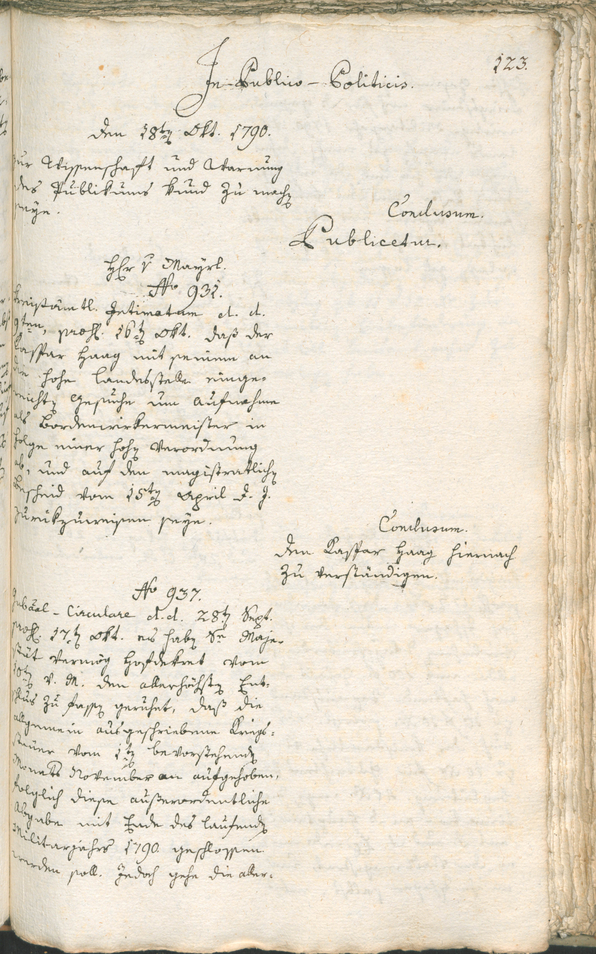 123.
In Publico-Politicis.
den 18ten Okt. 1790.
zur Wissenschaft und Warnung
des Publikums kund zu machen
seye.
Conclusum.
Publicetur.
Hr v Mayrl.
No 931.
Kreisämtl. Intimatum d. d.
9ten, praes. 16ten Okt. daß der
Kaspar Haag mit seinem an
die hohe Landesstelle einge-
reichten Gesuche um Aufnahme
als Bordenwirkermeister in
Folge einer hohen Verordnung
ab, und auf den magistratlichen
Bescheid vom 15ten April d. J.
zurükzuweisen seye.
Conclusum.
Den Kaspar Haag hiernach
zu verständigen.
No 937.
Gubernial-Circulare d. d. 28ten Sept.
praes. 17ten Okt. es haben Se Maje-
stät vermög Hofdekret vom
v. M. den allerhöchsten Ent-
schluß zu fassen geruhet, daß die
allgemein ausgeschriebene Kriegs-
steuer vom 1ten bevorstehenden
Monats November an aufgehoben,
folglich diese außerordentliche
Abgabe mit Ende des laufenden
Militarjahrs 1790 geschlossen
werden soll. Jedoch gehe die aller-